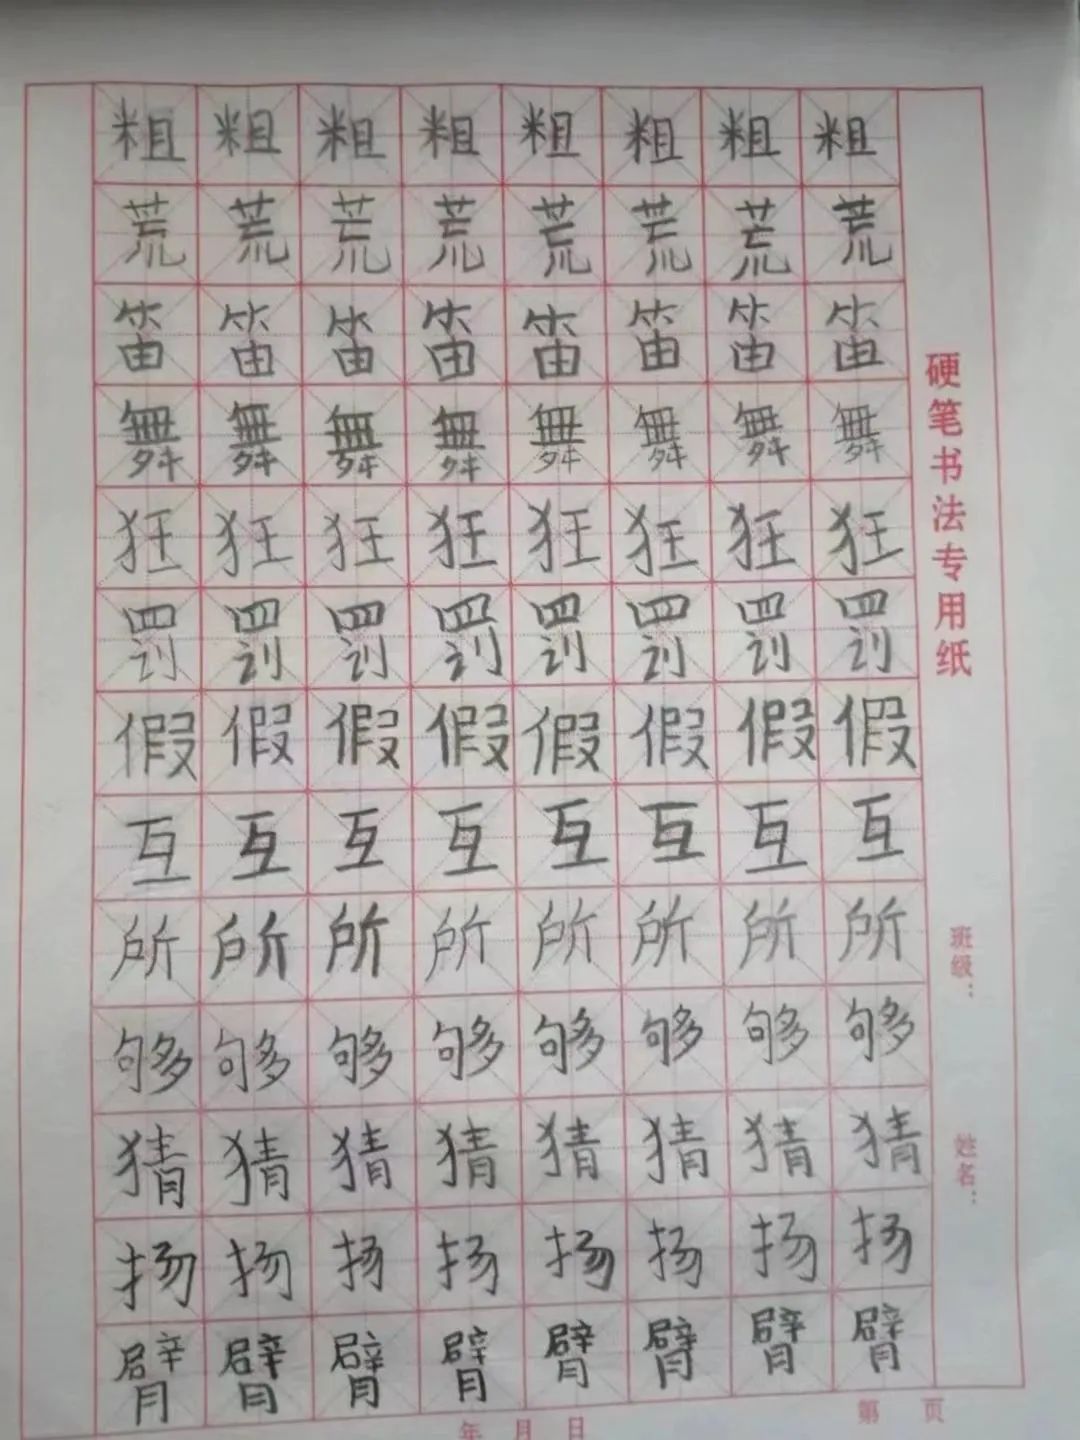 粗粗粗粗粗粗粗粗
荒荒荒荒荒荒荒荒
笛笛笛笛笛笛笛笛
舞舞舞舞舞舞舞舞
狂狂狂狂狂狂狂狂
罚罚罚罚罚罚罚罚
假假假假假假假假
互互互互互互互互
所所所所所所所所
够够够够够够够够
猜猜猜猜猜猜猜猜
扬扬扬扬扬扬扬扬
臂臂臂臂臂臂臂臂
硬笔书法专用纸
班级：
姓名：
年 月 日
第 页